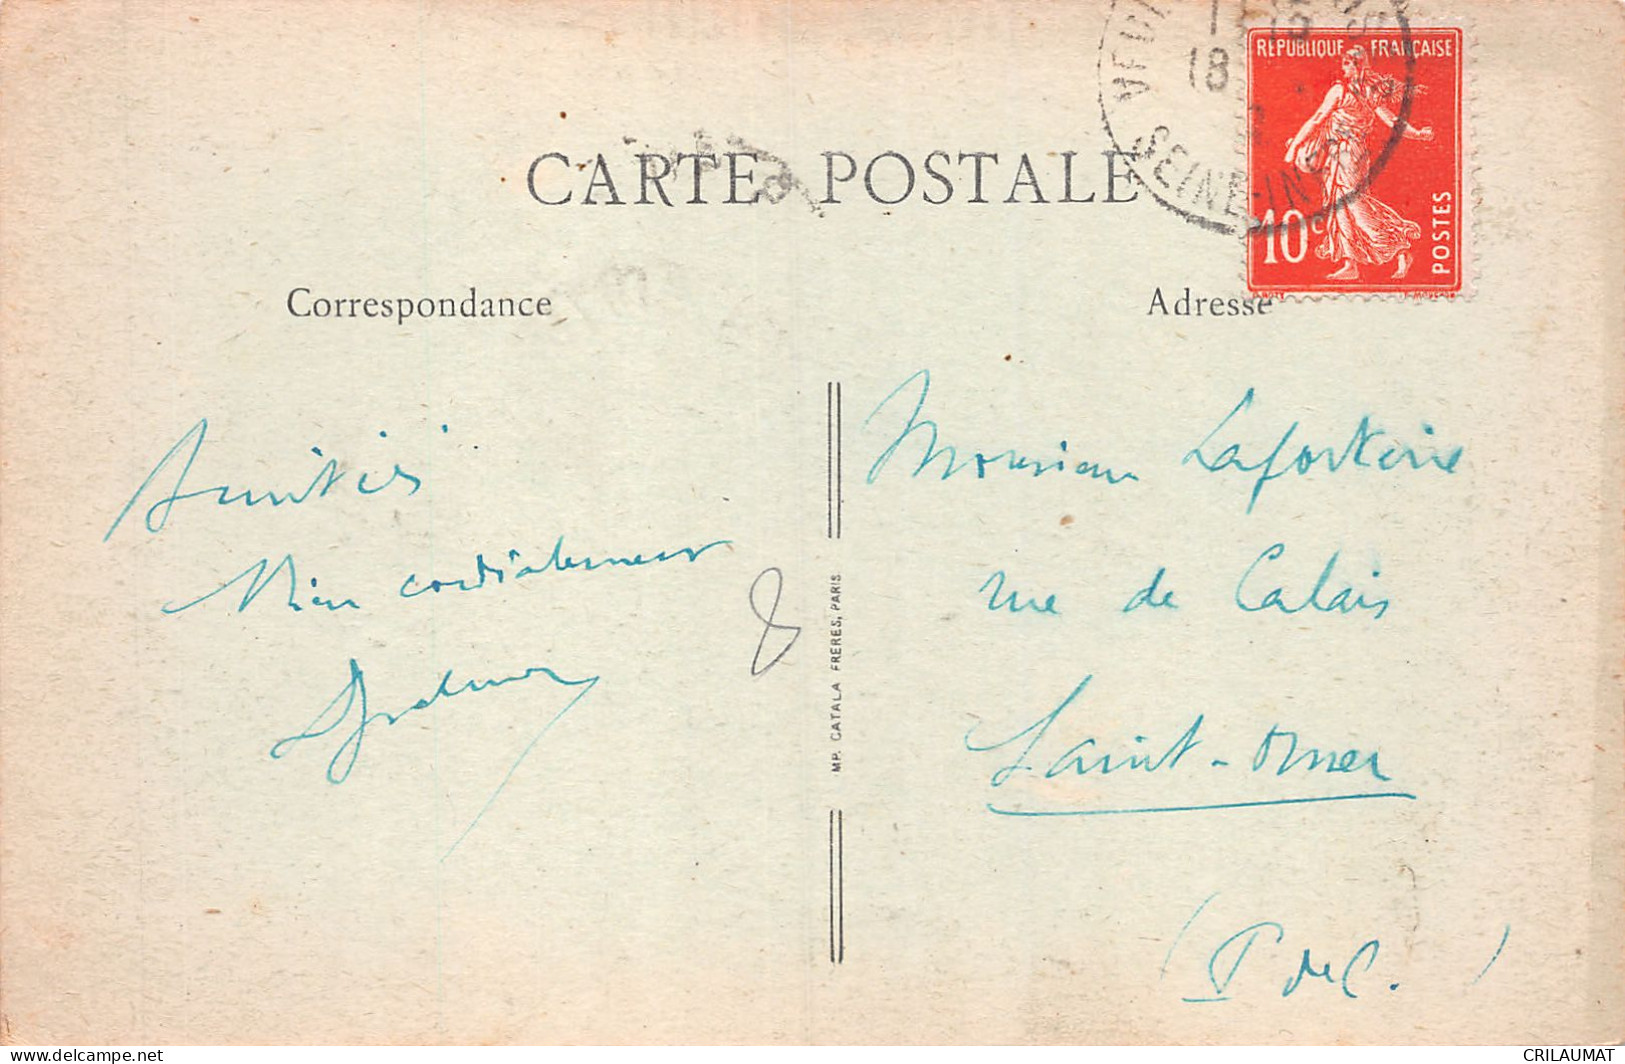 18
SEINE-INFRE
REPUBLIQUE FRANÇAISE
10c
POSTES
CARTE POSTALE
Correspondance
Adresse
Amitiés
Bien cordialement
Monsieur Lafontaine
rue de Calais
Saint-Omer
(P de C.)
IMP. CATALA FRERES, PARIS
delcampe.net
CRILAUMAT